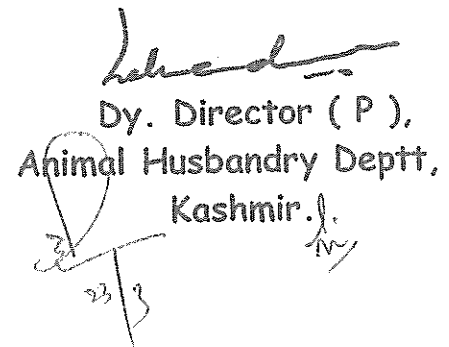 Dy. Director ( P ),
Animal Husbandry Deptt,
Kashmir.
23 3